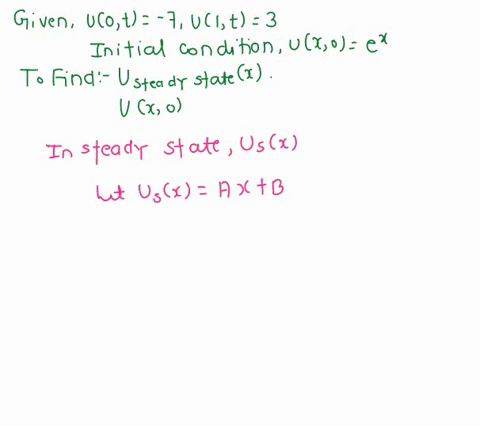 Given, U(0,t) = -7, U(1,t) = 3
Initial condition, U(x,0) = e^x
To Find:- U steady state (x).
U(x,0)
In steady state, U_s(x)
Let U_s(x) = Ax+B